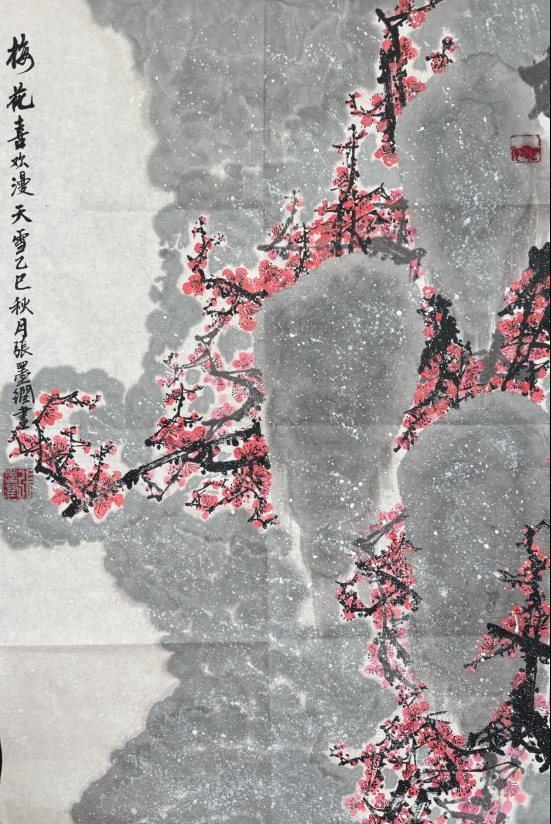 梅花喜欢漫天雪乙巳秋月張墨潤畫